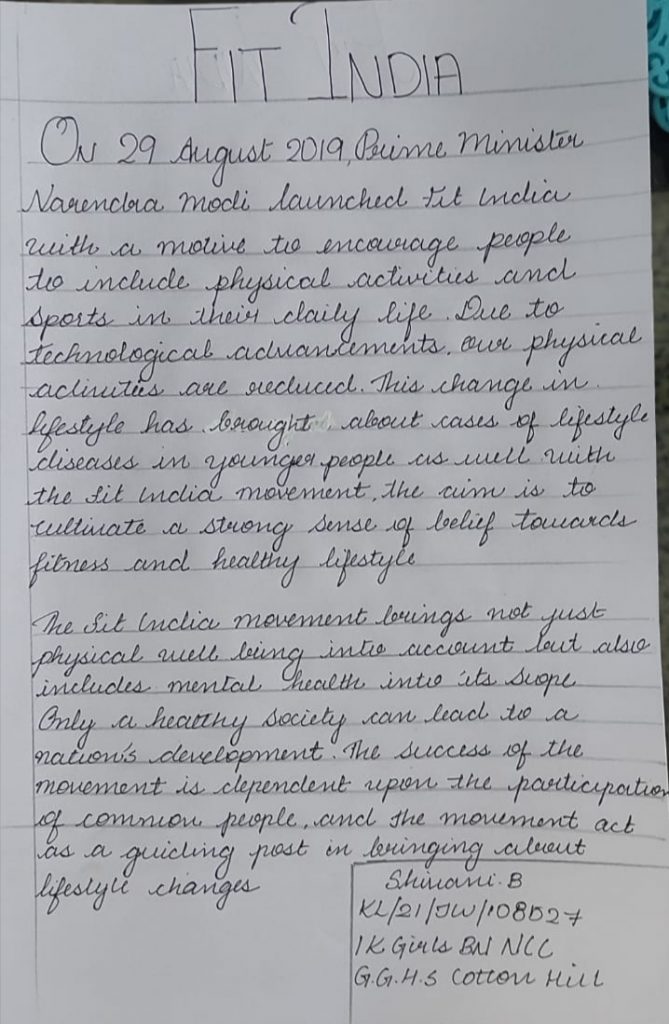 FIT INDIA
On 29 August 2019, Prime Minister
Narendra Modi launched Fit India
with a motive to encourage people
to include physical activities and
sports in their daily life. Due to
technological advancements, our physical
activities are reduced. This change in
lifestyle has brought about cases of lifestyle
diseases in younger people as well with
the Fit India movement, the aim is to
cultivate a strong sense of belief towards
fitness and healthy lifestyle
The Fit India movement brings not just
physical well being into account but also
includes mental health into its scope
Only a healthy society can lead to a
nation's development. The success of the
movement is dependent upon the participation
of common people, and the movement act
as a guiding post in bringing about
lifestyle changes
Shivani. B
KL/21/JW/108527
1 K Girls BN NCC
G.G.H.S Cotton Hill